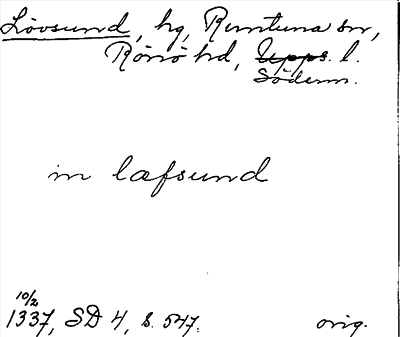 Lövsund, hg, Runtuna sn,
Rönö hd, Upps. l.
Söderm.
in lafsund
10/2
1337, SD 4, s. 547.
orig.